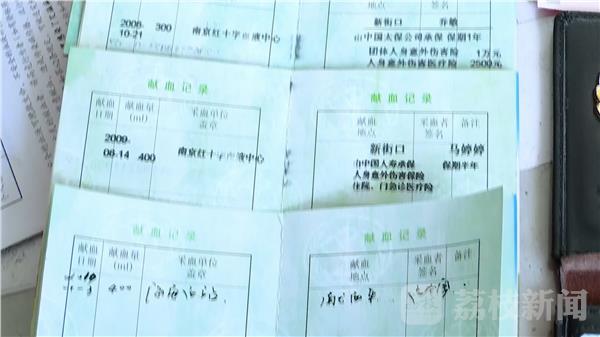 地点 签名
2008-
10-21 300 南京红十字血液中心 新街口 乔敏
由中国太保公司承保 保期1年
团体人身意外伤害险 1万元
人身意外伤害医疗险 2500元
献血记录 献血记录
献血日期 献血量(ml) 采血单位盖章 献血地点 采血者签名 备注
2009-
06-14 400 南京红十字血液中心 新街口 马婷婷
由中国人寿承保 保期半年
人身意外伤害保险
住院、门急诊医疗险
献血记录 献血记录
献血日期 献血量(ml) 采血单位盖章 献血地点 采血者签名 备注
400
荔枝新闻